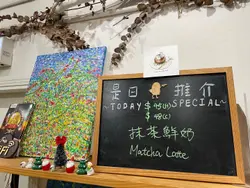 是日 推介
~TODAY SPECIAL~
$45(H)
$48(C)
抹茶鮮奶
Matcha Latte